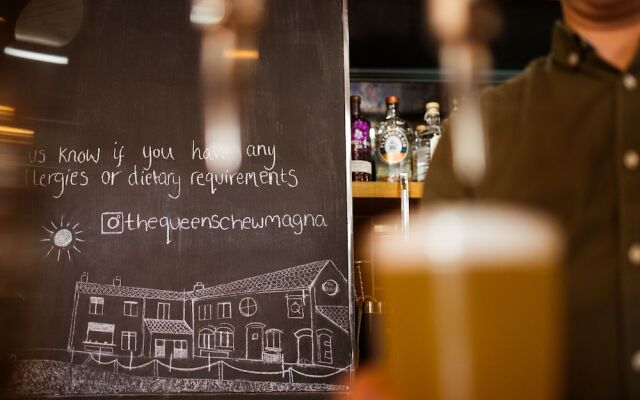 us know if you have any
llergies or dietary requirements
thequeenschewmagna